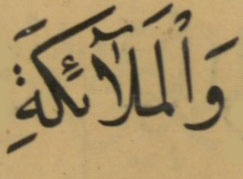 وَالْمَلَآئِكَةِ